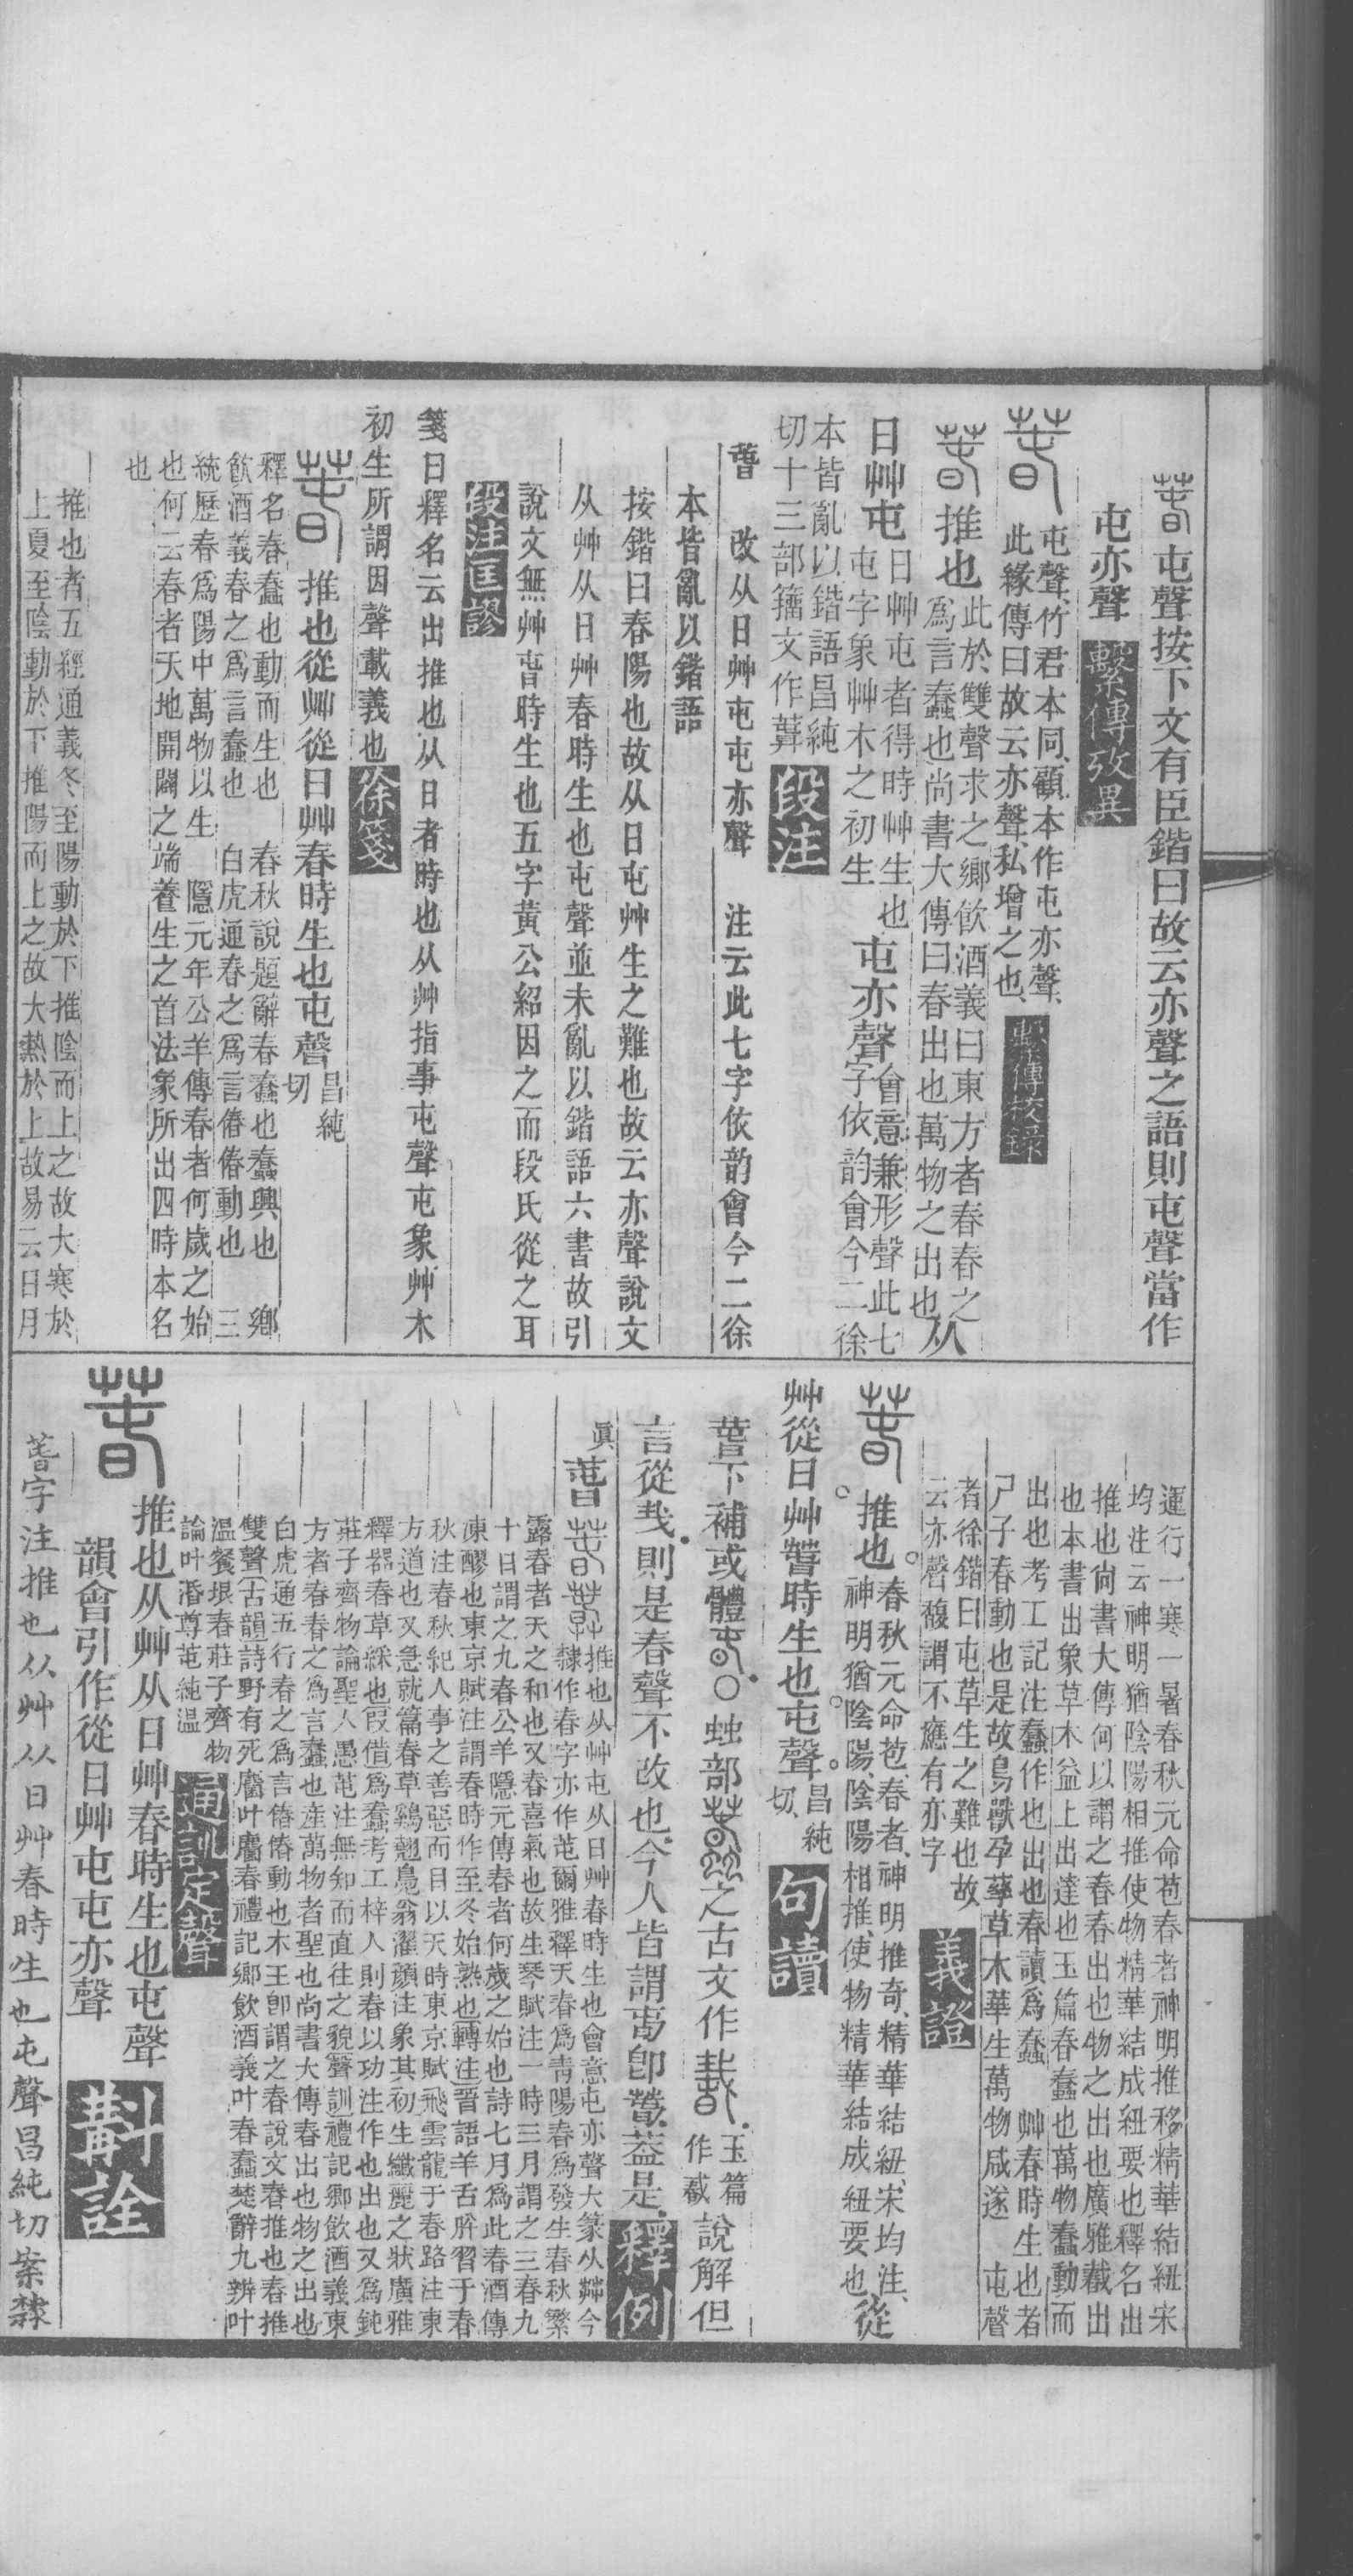 萅屯聲按下文有臣鍇曰故云亦聲之語則屯聲當作
屯亦聲 繫傳攷異
萅 屯聲竹君本同顧本作屯亦聲
此緣傳曰故云亦聲私增之也 繫傳校錄
萅 推也 此於雙聲求之鄉飲酒義曰東方者春春之
爲言蠢也尚書大傳曰春出也萬物之出也 从
日艸屯 日艸屯者得時艸生也
屯字象艸木之初生 屯亦聲 會意兼形聲此七
字依韵會今二徐
本皆亂以鍇語昌純
切十三部籒文作
段注
萅 改从日艸屯屯亦聲 注云此七字依韵會今二徐
本皆亂以鍇語
按鍇曰春陽也故从日屯艸生之難也故云亦聲說文
从艸从日艸春時生也屯聲並未亂以鍇語六書故引
說文無艸萅時生也五字黃公紹因之而段氏從之耳
段注匡謬
箋曰釋名云出推也从日者時也从艸指事屯聲屯象艸木
初生所謂因聲載義也 徐箋
萅 推也從艸從日艸春時生也屯聲 昌純
切
釋名春蠢也動而生也 春秋說題辭春蠢也蠢興也 鄉
飲酒義春之爲言蠢也 白虎通春之爲言偆偆動也 三
統歷春爲陽中萬物以生 隱元年公羊傳春者何歲之始
也何云春者天地開闢之端養生之首法象所出四時本名
也
推也者五經通義冬至陽動於下推陰而上之故大寒於
上夏至陰動於下推陽而上之故大熱於上故易云日月
運行一寒一暑春秋元命苞春者神明推移精華結紐宋
均注云神明猶陰陽相推使物精華結成紐要也釋名出
推也尙書大傳何以謂之春春出也物之出也廣雅截出
也本書出象草木益上出達也玉篇春蠢也萬物蠢動而
出也考工記注蠢作也出也春讀爲蠢 艸春時生也者
尸子春動也是故鳥獸孕孳草木華生萬物咸遂 屯聲
者徐鍇曰屯草生之難也故
云亦聲馥謂不應有亦字
義證
萅 推也 春秋元命苞春者神明推奇精華結紐宋均注
神明猶陰陽陰陽相推使物精華結成紐要也 從
艸從日艸萅時生也屯聲 昌純
切 句讀
萅下補或體〇䖵部之古文作 玉篇
作 說解但
言從則是春聲不改也今人皆謂旾卽萅葢是 釋例
眞 萅 推也从艸屯从日艸春時生也會意屯亦聲大篆从茻今
隸作春字亦作芚爾雅釋天春爲靑陽春爲發生春秋繁
露春者天之和也又春喜氣也故生琴賦注一時三月謂之三春九
十日謂之九春公羊隱元傳春者何歲之始也詩七月爲此春酒傳
凍醪也東京賦注謂春時作至冬始熟也轉注晉語羊舌肸習于春
秋注春秋紀人事之善惡而目以天時東京賦飛雲龍于春路注東
方道也又急就篇春草鷄翹鳧翁濯顏注象其初生纖麗之狀廣雅
釋器春草綵也叚借爲蠢考工梓人則春以功注作也出也又爲鈍
莊子齊物論聖人愚芚注無知而直往之貌聲訓禮記鄉飲酒義東
方者春春之爲言蠢也產萬物者聖也尚書大傳春出也物之出也
白虎通五行春之爲言偆偆動也木王卽謂之春說文春推也春推
雙聲古韻詩野有死麕叶麕春禮記鄉飲酒義叶春蠢楚辭九辨叶
溫餐垠春莊子齊物
論叶湣尊芚純溫 通訓定聲
萅 推也从艸从日艸春時生也屯聲
韻會引作從日艸屯屯亦聲 斠詮
萅字注推也从艸从日艸春時生也屯聲昌純切案隸